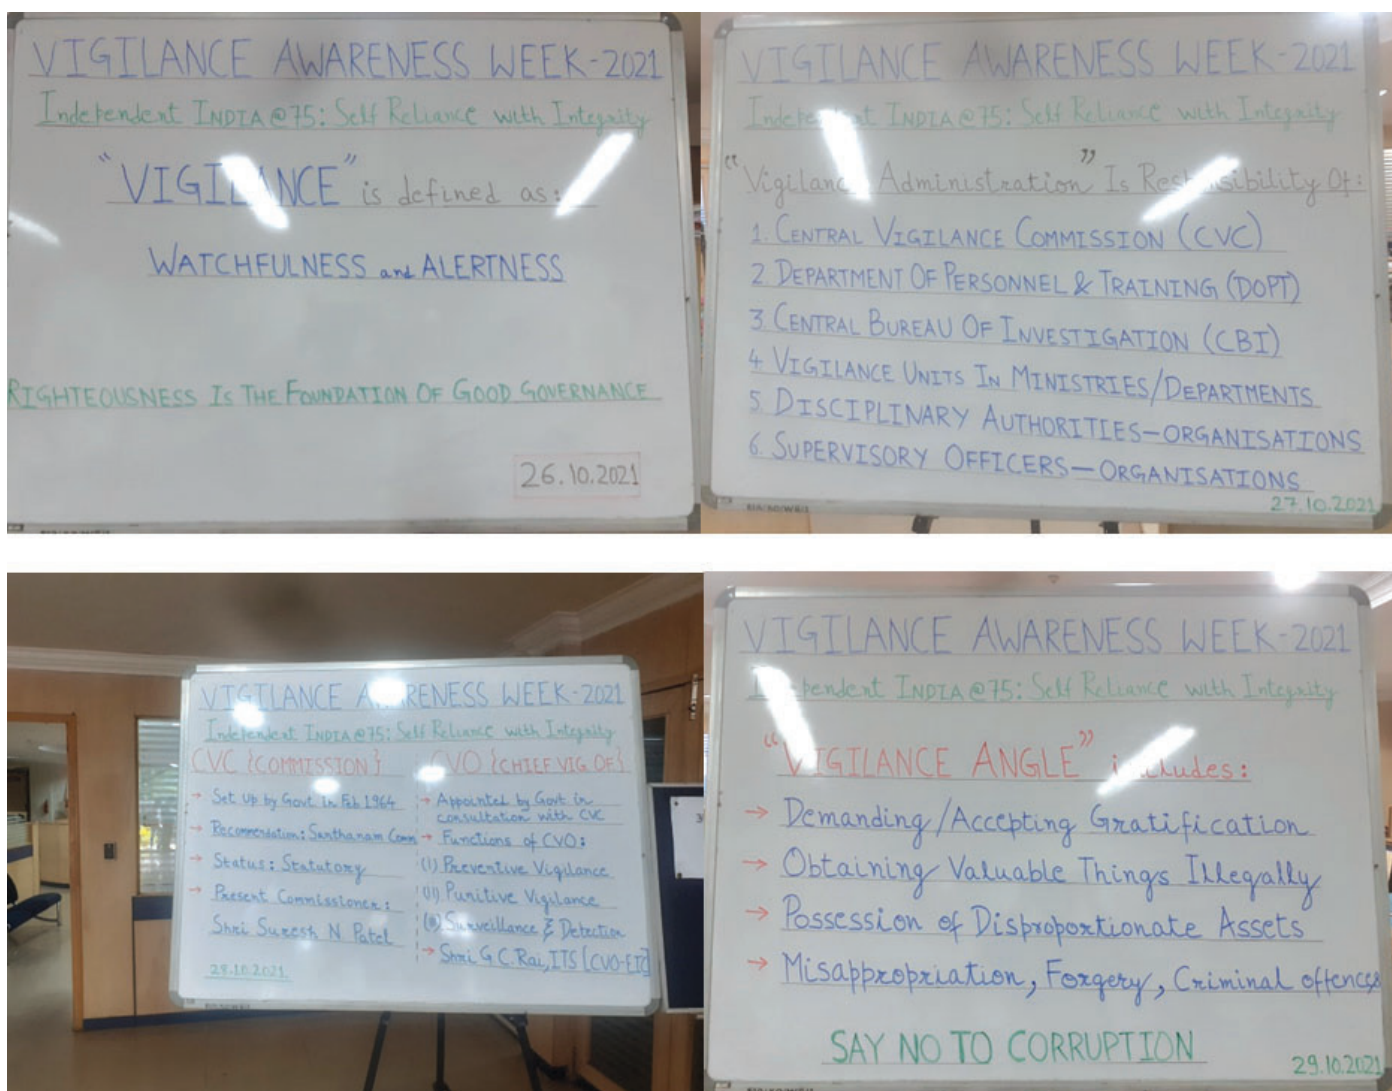 VIGILANCE AWARENESS WEEK-2021
Independent INDIA@75: Self Reliance with Integrity
"VIGILANCE" is defined as:
WATCHFULNESS and ALERTNESS
RIGHTEOUSNESS IS THE FOUNDATION OF GOOD GOVERNANCE
26.10.2021
VIGILANCE AWARENESS WEEK-2021
Independent INDIA@75: Self Reliance with Integrity
"Vigilance Administration" Is Responsibility Of:
1. CENTRAL VIGILANCE COMMISSION (CVC)
2 DEPARTMENT OF PERSONNEL & TRAINING (DOPT)
3. CENTRAL BUREAU OF INVESTIGATION (CBI)
4 VIGILANCE UNITS IN MINISTRIES/DEPARTMENTS
5. DISCIPLINARY AUTHORITIES-ORGANISATIONS
6. SUPERVISORY OFFICERS-ORGANISATIONS
27.10.2021
VIGILANCE AWARENESS WEEK-2021
Independent INDIA@75: Self Reliance with Integrity
CVC {COMMISSION}
→ Set Up by Govt In Feb 1964
→ Recommendation: Santhanam Comm
→ Status: Statutory
→ Present Commissioner:
Shri Suresh N Patel
28.10.2021
CVO {CHIEF VIG OF}
→ Appointed by Govt in
consultation with CVC
→ Functions of CVO:
(i) Preventive Vigilance
(ii) Punitive Vigilance
Surveillance & Detection
→ Shri G C. Rai, ITS [CVO-ETC]
VIGILANCE AWARENESS WEEK-2021
Independent INDIA@75: Self Reliance with Integrity
"VIGILANCE ANGLE" includes:
→ Demanding/Accepting Gratification
→ Obtaining Valuable Things Illegally
→ Possession of Disproportionate Assets
→ Misappropriation, Forgery, Criminal offences
SAY NO TO CORRUPTION
29.10.2021